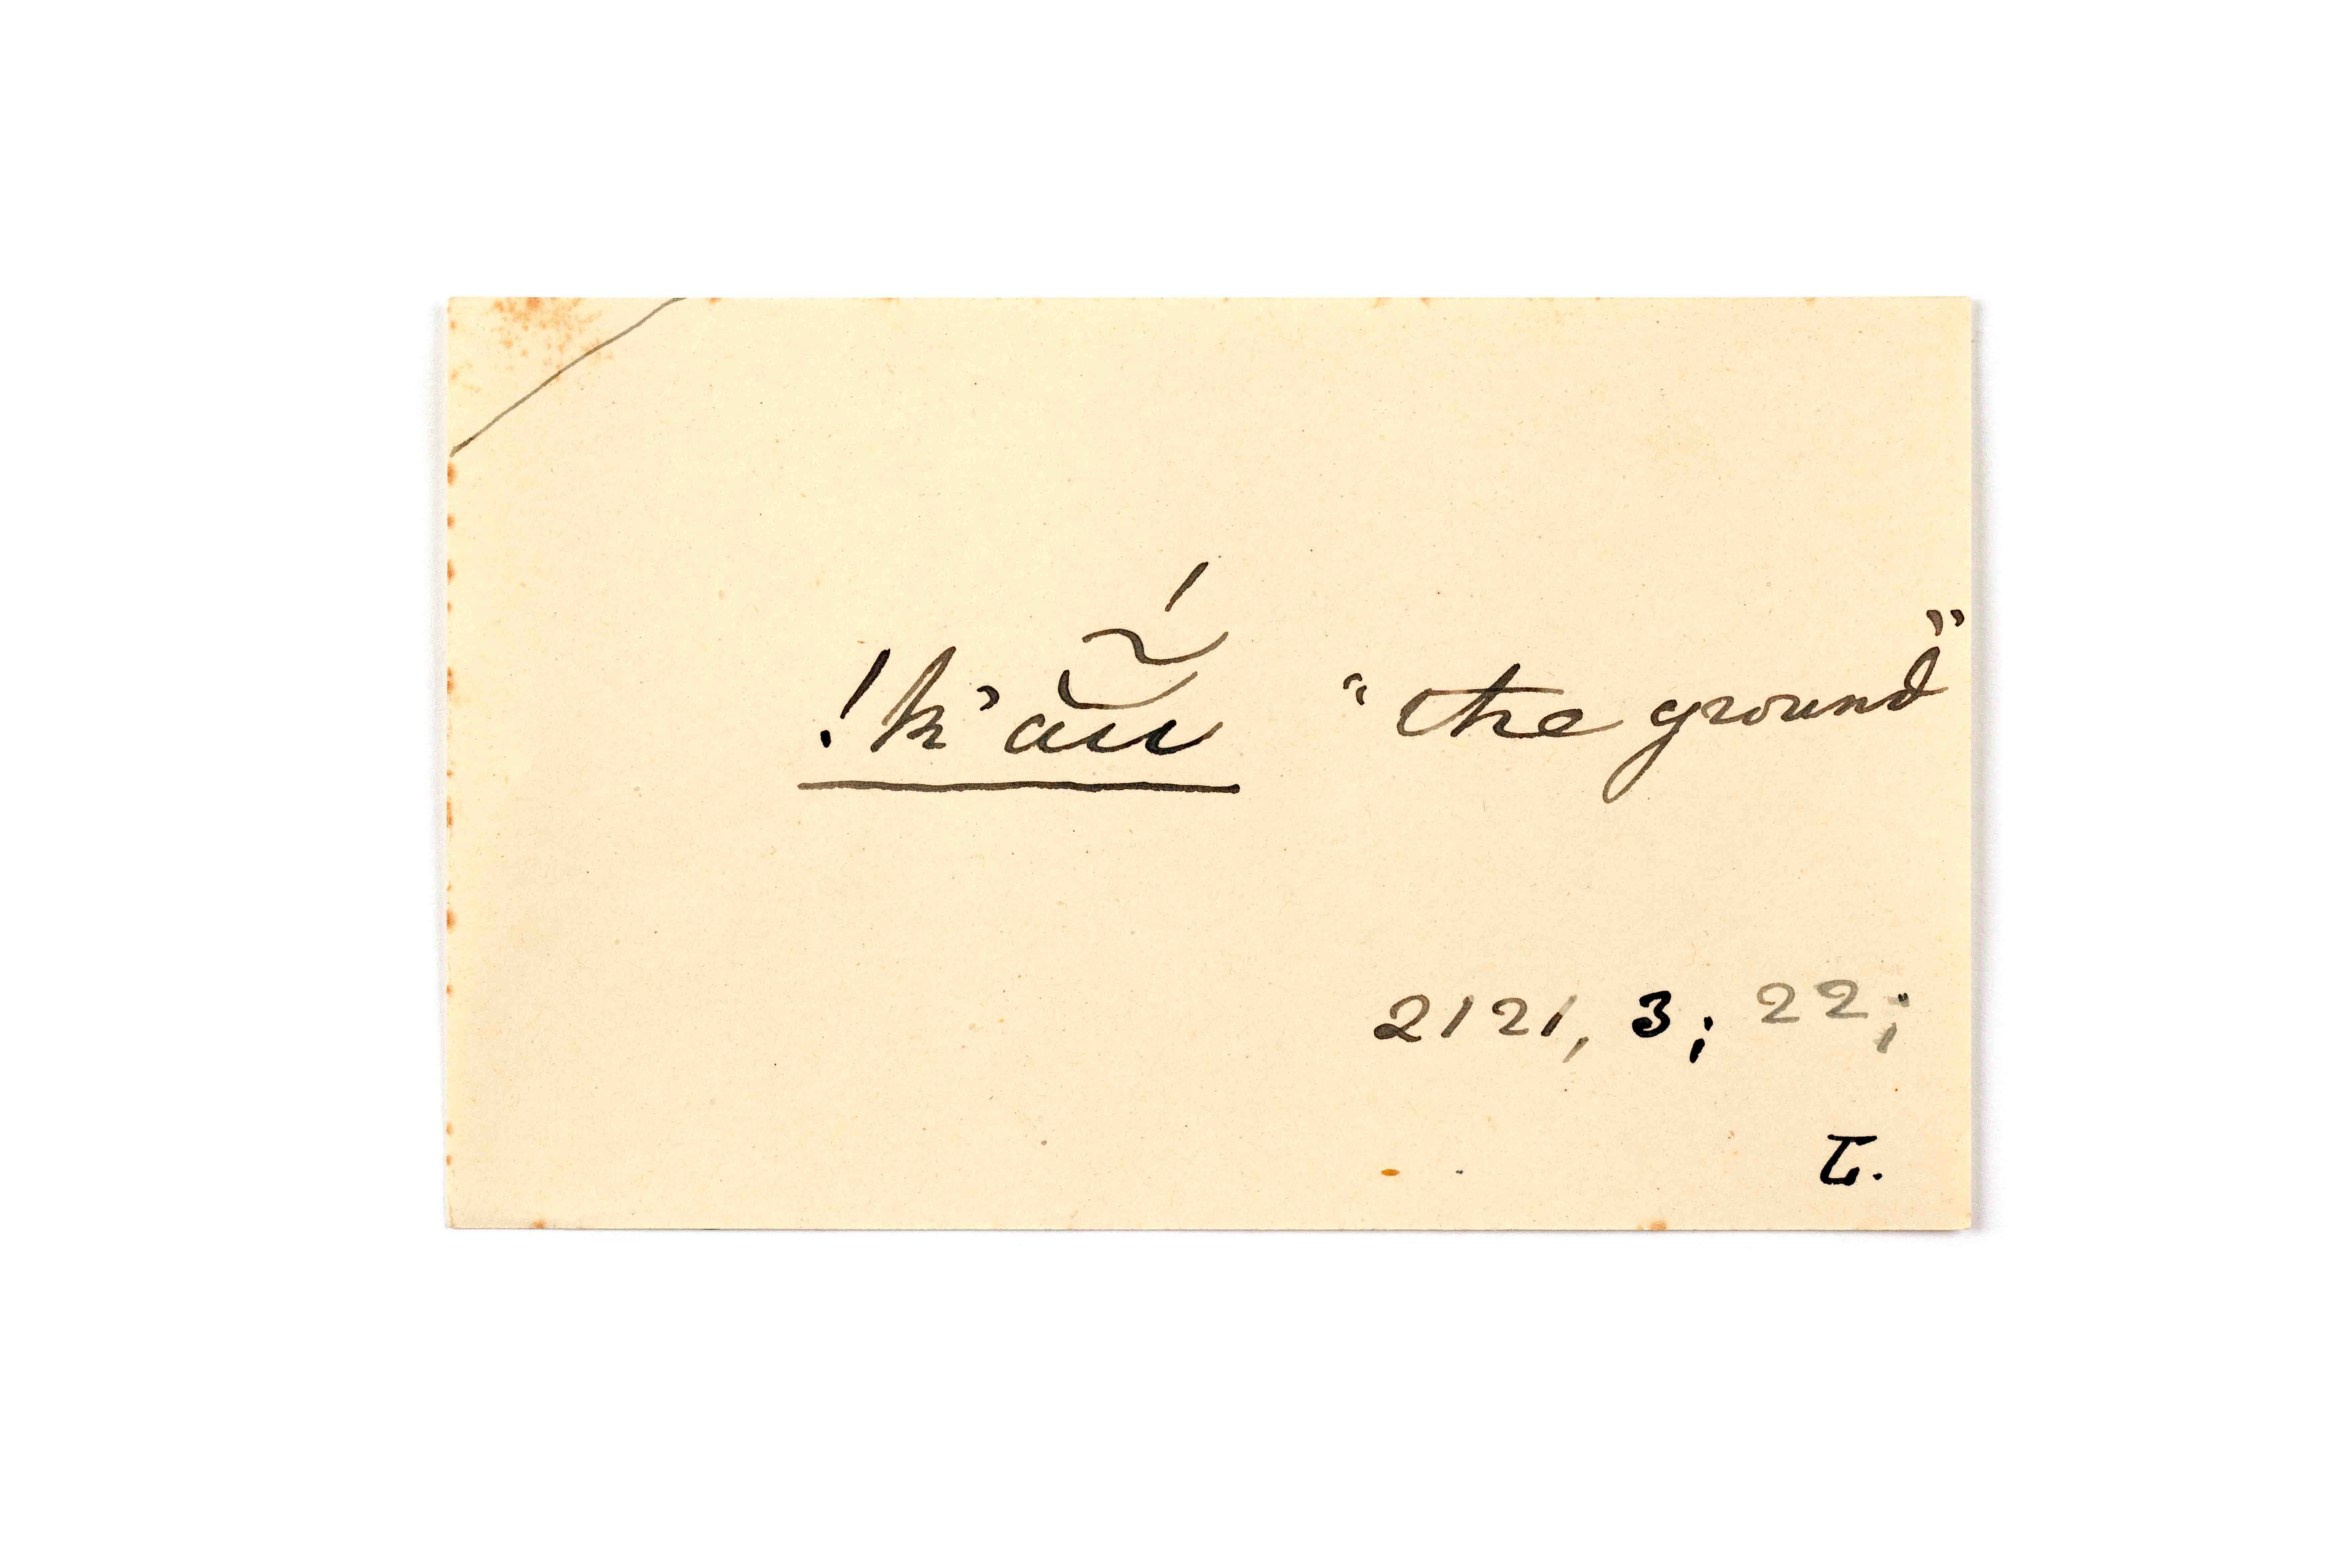 !k’ăṹ̯ “the ground”
2121, 3; 22;
L.